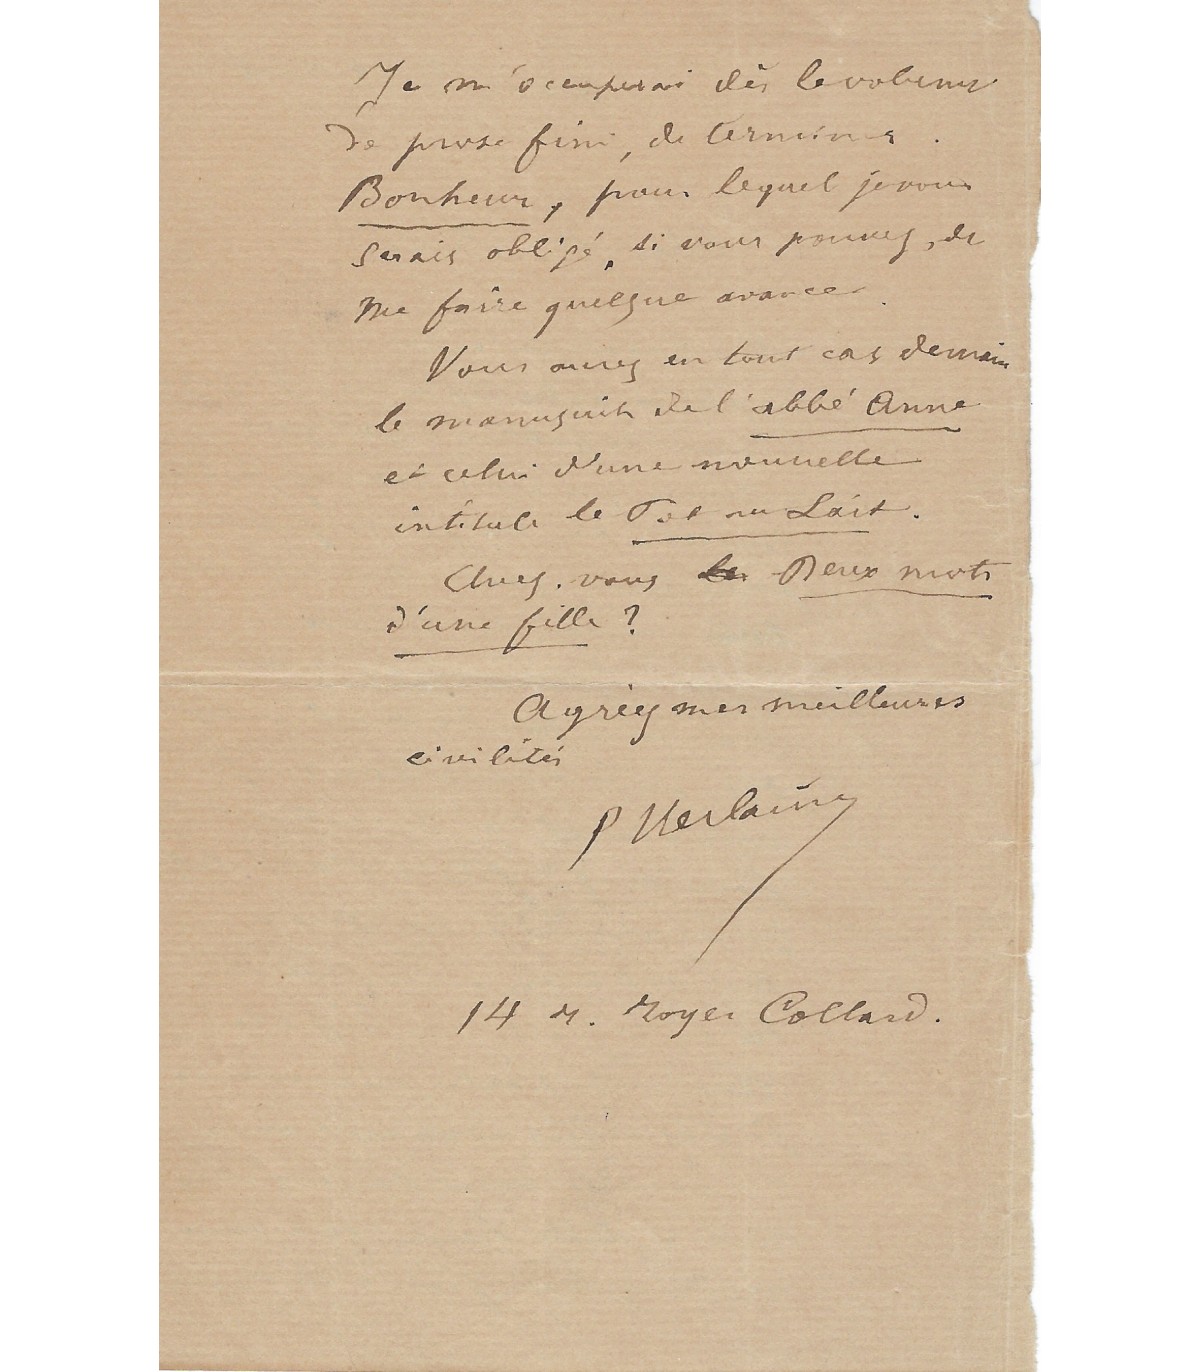 Je m'occuperai dès le volume
de prose fini, de terminer
Bonheur, pour lequel je vous
serais obligé, si vous pouvez, de
me faire quelque avance.
Vous aurez en tout cas demain
le manuscrit de l'abbé Anne
et celui d'une nouvelle
intitulé le Pot au Lait.
Avez-vous Deux mots
d'une fille ?
Agréez mes meilleures
civilités
P Verlaine
14 r. Royer Collard.